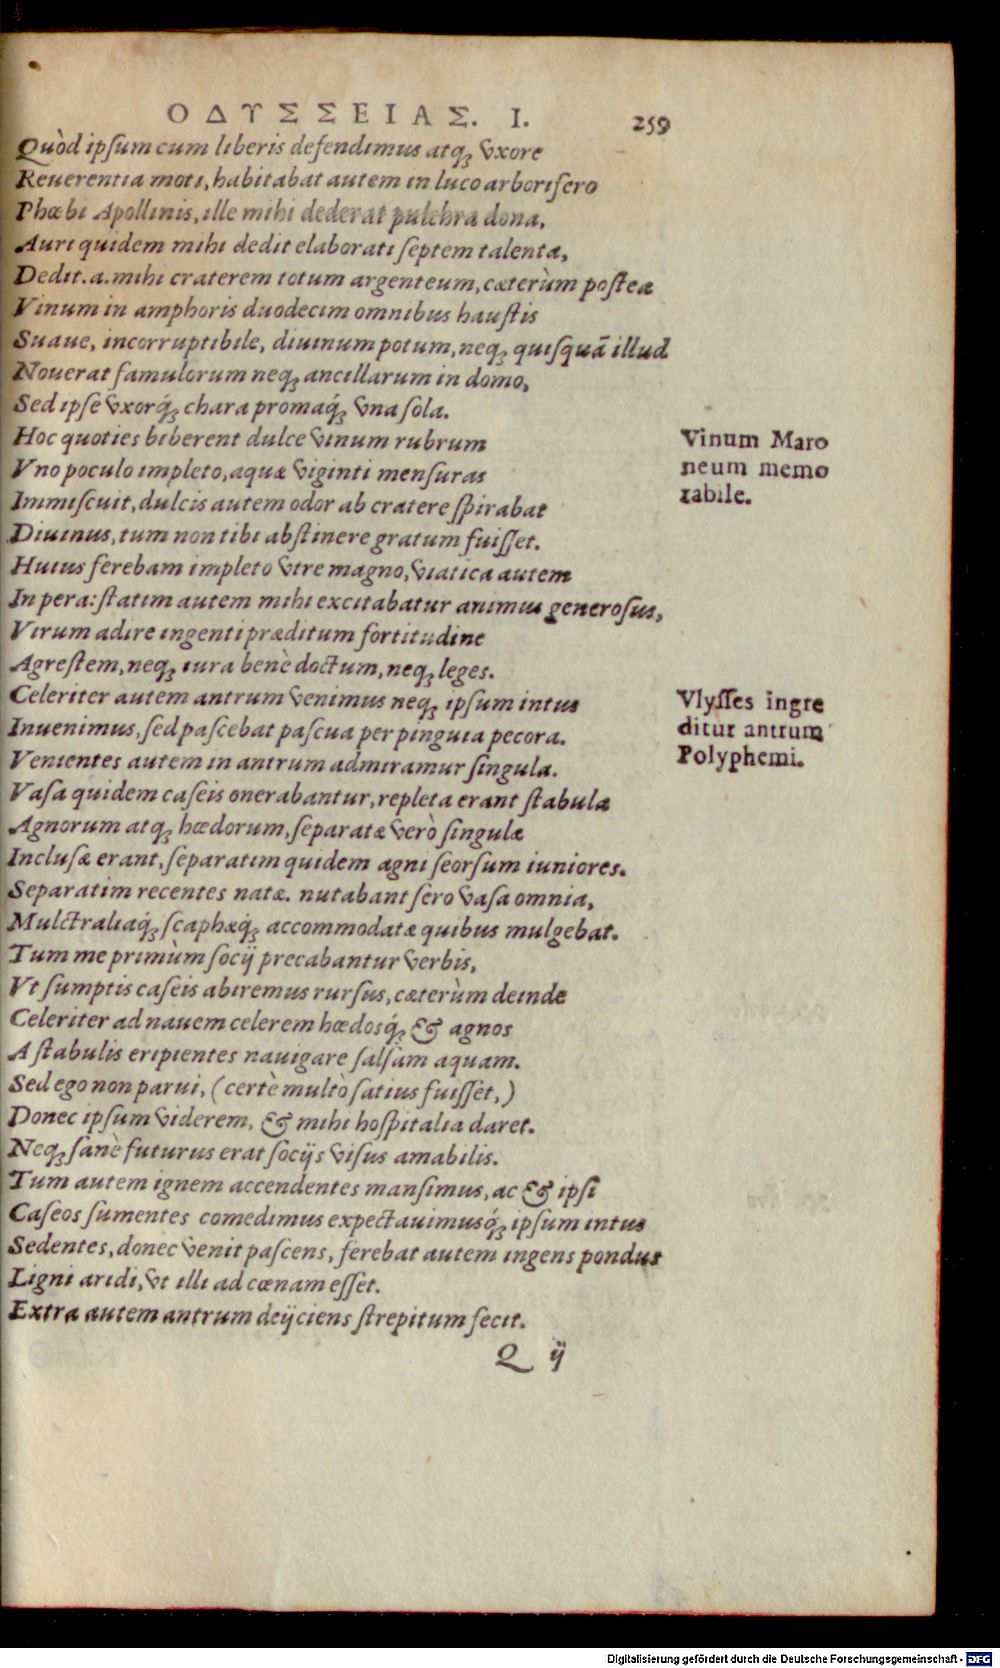 ΟΔΥΣΣΕΙΑΣ. I. 259
Quòd ipſum cum liberis defendimus atq; vxore
Reuerentia moti, habitabat autem in luco arborifero
Phœbi Apollinis, ille mihi dederat pulchra dona,
Auri quidem mihi dedit elaborati ſeptem talenta,
Dedit .a. mihi craterem totum argenteum, cæterùm poſtea
Vinum in amphoris duodecim omnibus hauſtis
Suaue, incorruptibile, diuinum potum, neq; quiſquã illud
Nouerat famulorum neq; ancillarum in domo,
Sed ipſe vxorq́; chara promaq́; vna ſola.
Hoc quoties biberent dulce vinum rubrum
Vno poculo impleto, aquæ viginti menſuras
Immiſcuit, dulcis autem odor ab cratere ſpirabat
Diuinus, tum non tibi abſtinere gratum fuiſſet.
Huius ferebam impleto vtre magno, viatica autem
In pera: ſtatim autem mihi excitabatur animus generoſus,
Virum adire ingenti præditum fortitudine
Agreſtem, neq; iura benè doctum, neq; leges.
Celeriter autem antrum venimus neq; ipſum intus
Inuenimus, ſed paſcebat paſcua per pinguia pecora.
Venientes autem in antrum admiramur ſingula.
Vaſa quidem caſeis onerabantur, repleta erant ſtabula
Agnorum atq; hœdorum, ſeparatæ verò ſingulæ
Incluſæ erant, ſeparatim quidem agni ſeorſum iuniores.
Separatim recentes natæ. nutabant ſero vaſa omnia,
Mulctraliaq́; ſcaphæq́; accommodatæ quibus mulgebat.
Tum me primùm ſocij precabantur verbis,
Vt ſumptis caſeis abiremus rurſus, cæterùm deinde
Celeriter ad nauem celerem hœdosq́; & agnos
A ſtabulis eripientes nauigare ſalſam aquam.
Sed ego non parui, (certè multò ſatius fuiſſet,)
Donec ipſum viderem, & mihi hoſpitalia daret.
Neq; ſanè futurus erat ſocijs viſus amabilis.
Tum autem ignem accendentes manſimus, ac & ipſi
Caſeos ſumentes comedimus expectauimusq́; ipſum intus
Sedentes, donec venit paſcens, ferebat autem ingens pondus
Ligni aridi, vt illi ad cœnam eſſet.
Extra autem antrum deijciens ſtrepitum fecit.
Q ij
Vinum Maro
neum memo
rabile.
Vlyſſes ingre
ditur antrum
Polyphemi.
Digitalisierung gefördert durch die Deutsche Forschungsgemeinschaft - DFG